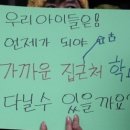 우리아이들은
언제가 되야
가까운 집근처 학교
다닐수 있을까요?